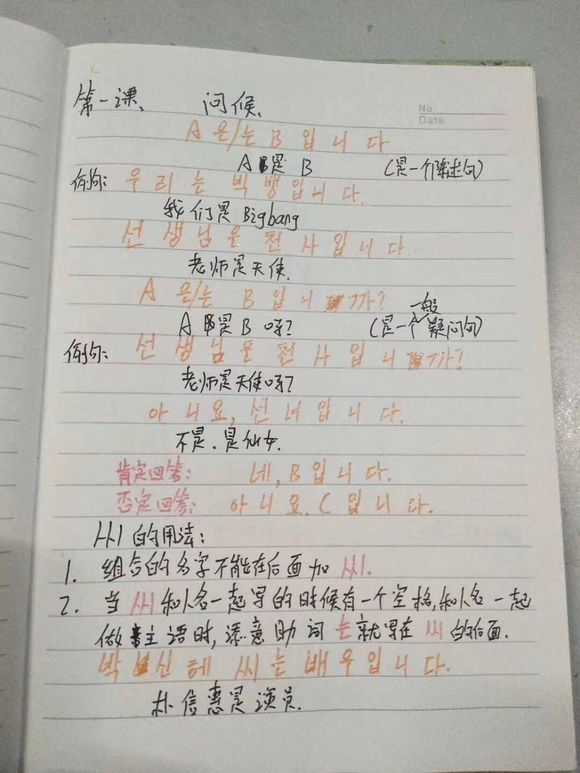 第一课、 问候、
No
Date
A 은/는 B 입니다
A 是 B (是一个陈述句)
例句: 우리는 빅뱅입니다.
我们是 Bigbang
선생님은 천사입니다.
老师是天使.
A 은/는 B 입니까?
A 是 B 吗? (是一个一般疑问句)
例句: 선생님은 천사입니까?
老师是天使吗?
아니요, 선녀입니다.
不是. 是仙女.
肯定回答: 네, B 입니다.
否定回答: 아니요. C 입니다.
씨 的用法:
1. 组合的名字不能在后面加 씨.
2. 当 씨 和人名一起写的时候有一个空格,和人名一起
做主语时, 添意助词 는 就写在 씨 的后面.
박신혜 씨는 배우입니다.
朴信惠是演员.